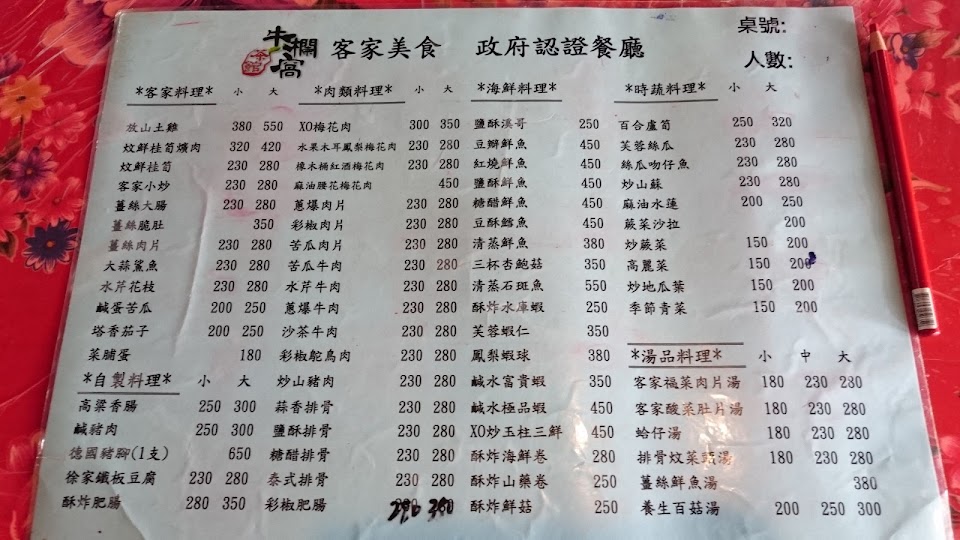 牛欄窩
茶館
客家美食 政府認證餐廳
桌號:
人數:
*客家料理* 小 大
放山土雞 380 550
炆鮮桂筍爌肉 320 420
炆鮮桂筍 230 280
客家小炒 230 280
薑絲大腸 230 280
薑絲脆肚 350
薑絲肉片 230 280
大蒜鯊魚 230 280
水芹花枝 230 280
鹹蛋苦瓜 200 250
塔香茄子 200 250
菜脯蛋 180
*自製料理* 小 大
高粱香腸 250 300
鹹豬肉 250 300
德國豬腳(1支) 650
徐家鐵板豆腐 230 280
酥炸肥腸 280 350
*肉類料理* 小 大
XO梅花肉 300 350
水果木耳鳳梨梅花肉 230 280
橡木桶紅酒梅花肉 230 280
麻油腰花梅花肉 450
蔥爆肉片 230 280
彩椒肉片 230 280
苦瓜肉片 230 280
苦瓜牛肉 230 280
水芹牛肉 230 280
蔥爆牛肉 230 280
沙茶牛肉 230 280
彩椒鴕鳥肉 230 280
炒山豬肉 230 280
蒜香排骨 230 280
鹽酥排骨 230 280
糖醋排骨 230 280
泰式排骨 230 280
彩椒肥腸 290 380
*海鮮料理*
鹽酥溪哥 250
豆瓣鮮魚 450
紅燒鮮魚 450
鹽酥鮮魚 450
糖醋鮮魚 450
豆酥鱈魚 450
清蒸鮮魚 380
三杯杏鮑菇 350
清蒸石斑魚 550
酥炸水庫蝦 450
芙蓉蝦仁 350
鳳梨蝦球 380
鹹水富貴蝦 350
鹹水極品蝦 450
XO炒玉柱三鮮 450
酥炸海鮮卷 250
酥炸山藥卷 250
酥炸鮮菇 250
*時蔬料理* 小 大
百合蘆筍 250 320
芙蓉絲瓜 230 280
絲瓜吻仔魚 230 280
炒山蘇 230 280
麻油水蓮 200 250
蕨菜沙拉 200
炒蕨菜 150 200
高麗菜 150 200
炒地瓜葉 150 200
季節青菜 150 200
*湯品料理* 小 中 大
客家福菜肉片湯 180 230 280
客家酸菜肚片湯 180 230 280
蛤仔湯 180 230 280
排骨炆菜頭湯 180 230 280
薑絲鮮魚湯 380
養生百菇湯 200 250 300